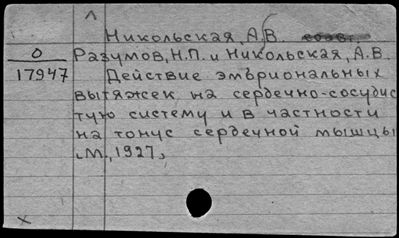 Никольская, А.В. соавт.
О
17947
Разумов, Н.П. и Никольская, А.В.
Действие эмбриональных
вытяжек на сердечно-сосудис
тую систему и в частности
на тонус сердечной мышцы
М., 1927,